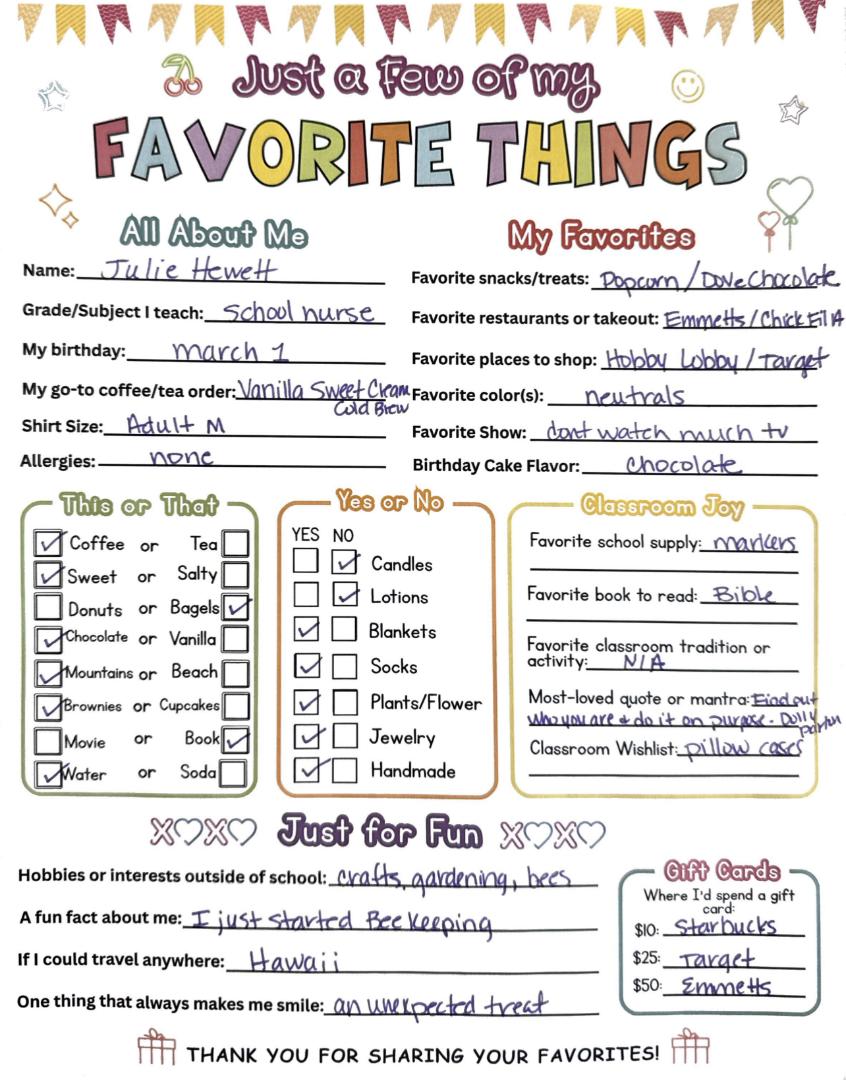 Just a Few of my
FAVORITE THINGS
All About Me
Name: Julie Hewett
Grade/Subject I teach: School nurse
My birthday: march 1
My go-to coffee/tea order: Vanilla Sweet Cream
Cold Brew
Shirt Size: Adult M
Allergies: none
My Favorites
Favorite snacks/treats: Popcorn / Dove Chocolate
Favorite restaurants or takeout: Emmetts / Chick Fil A
Favorite places to shop: Hobby Lobby / Target
Favorite color(s): neutrals
Favorite Show: dont watch much tv
Birthday Cake Flavor: chocolate
This or That
Coffee or Tea
Sweet or Salty
Donuts or Bagels
Chocolate or Vanilla
Mountains or Beach
Brownies or Cupcakes
Movie or Book
Water or Soda
Yes or No
YES NO
Candles
Lotions
Blankets
Socks
Plants/Flower
Jewelry
Handmade
Classroom Joy
Favorite school supply: markers
Favorite book to read: Bible
Favorite classroom tradition or
activity: N/A
Most-loved quote or mantra: Find out
who you are & do it on purpose - Dolly
parton
Classroom Wishlist: pillow cases
XOXO Just for Fun XOXO
Hobbies or interests outside of school: crafts, gardening, bees
A fun fact about me: I just started Bee Keeping
If I could travel anywhere: Hawaii
One thing that always makes me smile: an unexpected treat
Gift Cards
Where I'd spend a gift
card:
$10: Starbucks
$25: Target
$50: Emmetts
THANK YOU FOR SHARING YOUR FAVORITES!